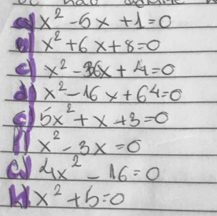 a) x² - 6x + 1 = 0
b) x² + 6x + 8 = 0
c) x² - 36x + 4 = 0
d) x² - 16x + 64 = 0
e) 5x² + x + 3 = 0
f) x² - 3x = 0
g) 4x² - 16 = 0
h) x² + 5 = 0